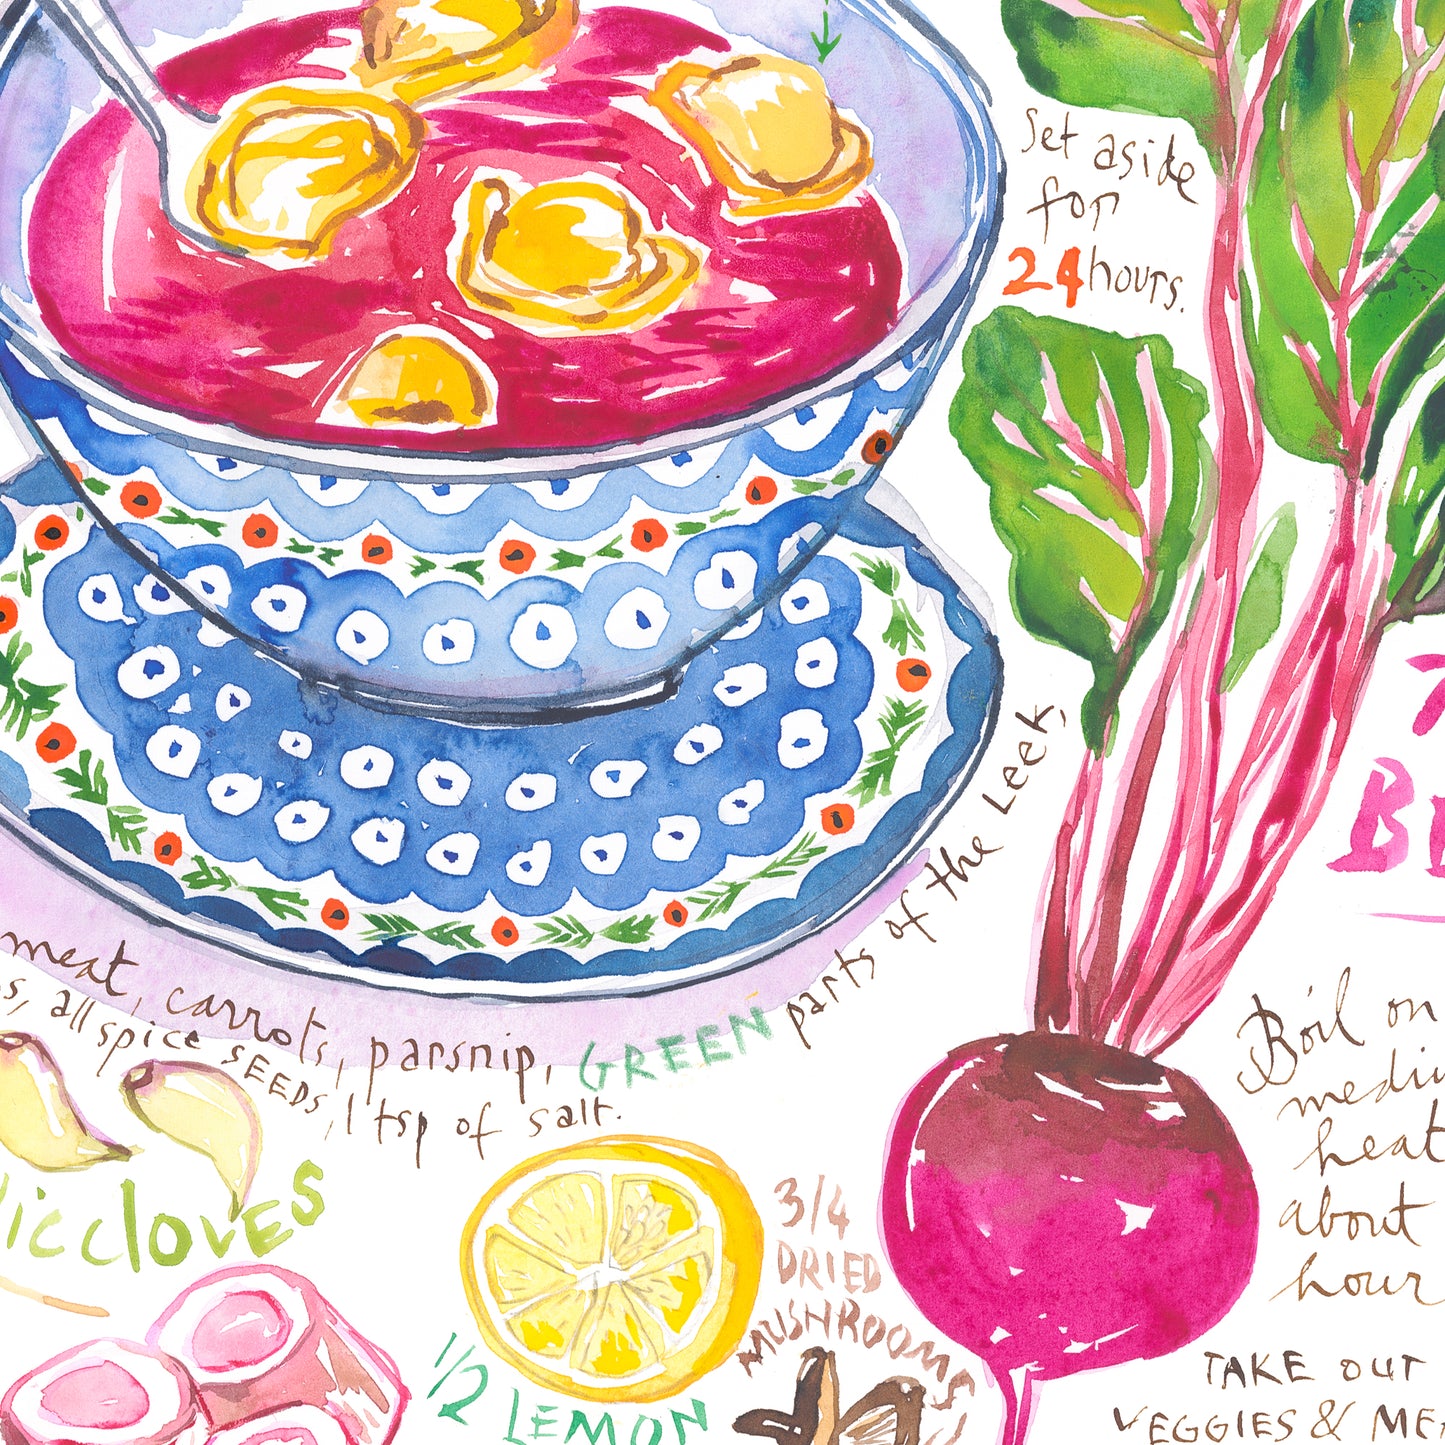 Set aside
for
24hours.
meat, carrots, parsnip, GREEN parts of the Leek,
s, all spice SEEDS, 1 tsp of salt.
BE
Boil on
mediu
heat
about
hour
iccloves
3/4
DRIED
MUSHROOMS
1/2 LEMON
TAKE OUT
VEGGIES & ME